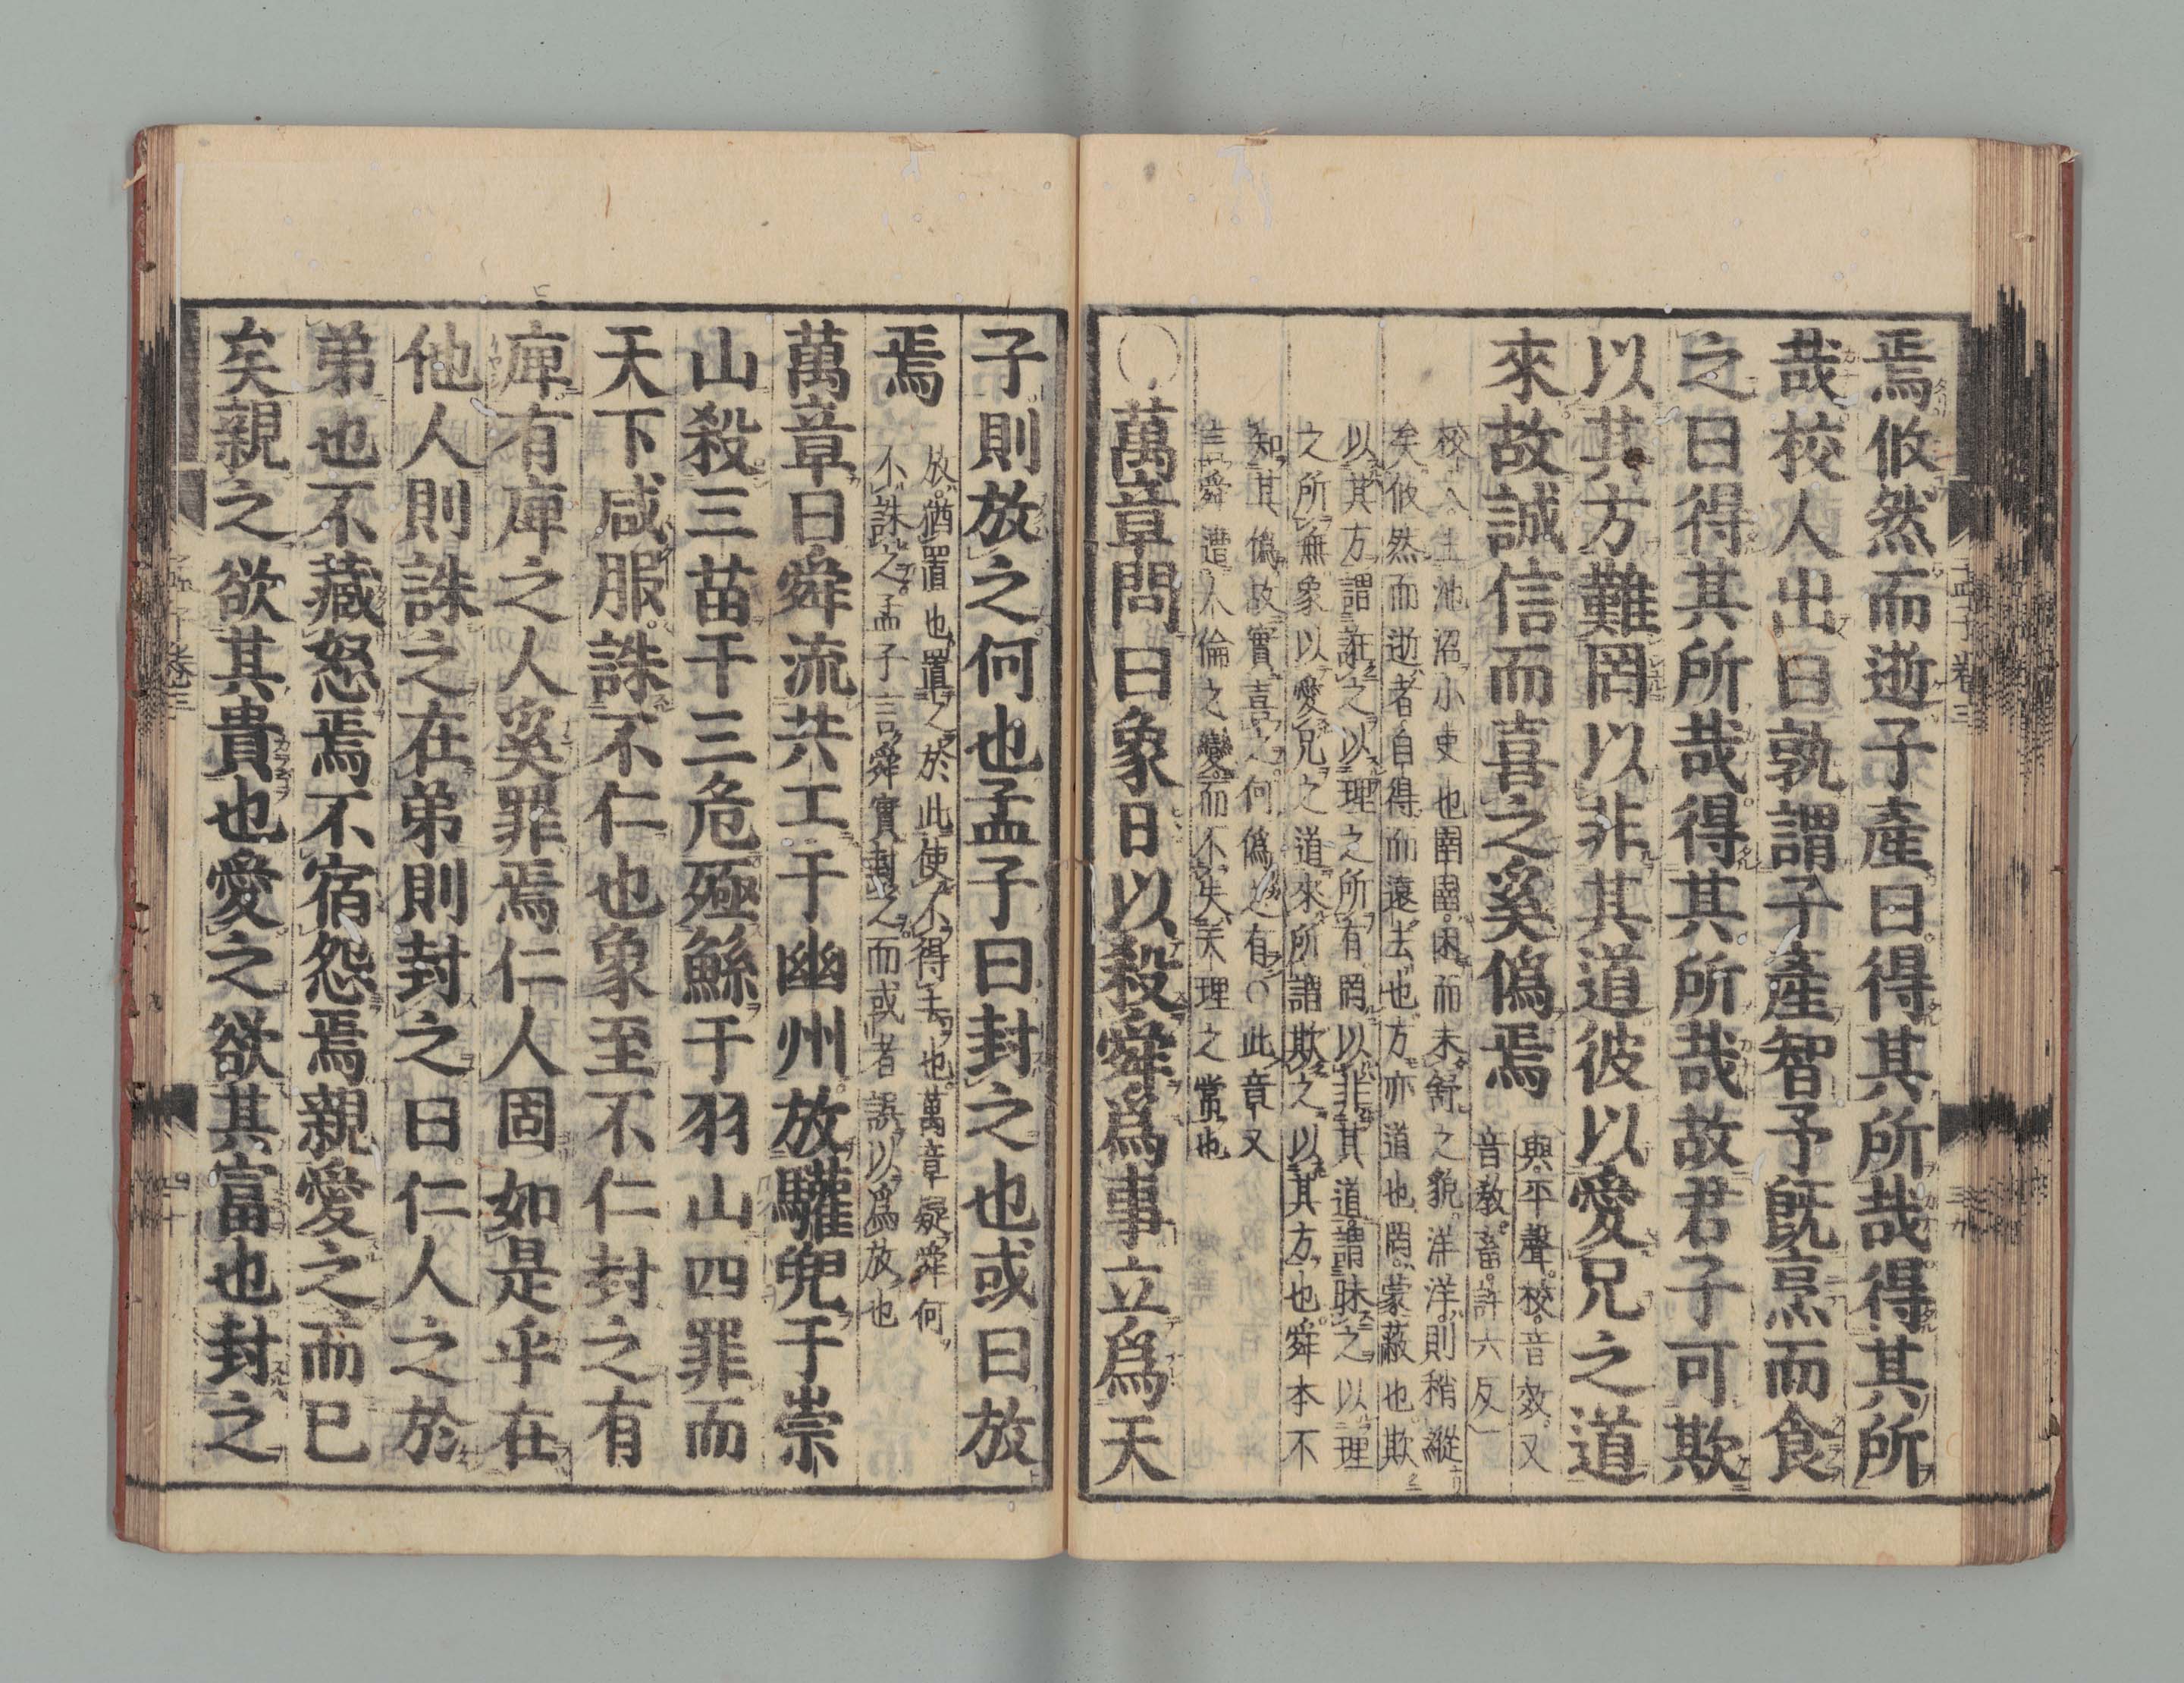 焉攸然而逝子産曰得其所哉得其所
哉校人出曰孰謂子産智予既烹而食
之曰得其所哉得其所哉故君子可欺
以其方難罔以非其道彼以愛兄之道
來故誠信而喜之奚僞焉
與平聲。校。音效。又
音教。畜。許六反
校人主池沼小吏也圉圉。困而未舒之貌洋洋。則稍縱
矣攸然而逝者自得而遠去也方亦道也罔。蒙蔽也。欺
以其方謂誑之以理之所有罔以非其道。謂昧之以理
之所無象以愛兄之道來所謂欺之以其方也舜本不
知其僞故實喜之何僞之有○此章又
言舜遭人倫之變。而不失天理之常也
○萬章問曰象日以殺舜爲事立爲天
子則放之何也孟子曰封之也或曰放
焉
放。猶置也。置之於此使不得去也。萬章疑舜何
不誅之。孟子言舜實封之。而或者誤以爲放也
萬章曰舜流共工于幽州放驩兜于崇
山殺三苗于三危殛鯀于羽山四罪而
天下咸服。誅不仁也象至不仁封之有
庳有庳之人奚罪焉仁人固如是乎在
他人則誅之在弟則封之曰仁人之於
弟也不藏怒焉不宿怨焉親愛之而已
矣親之欲其貴也愛之欲其富也封之
孟子卷三
卷三
四十